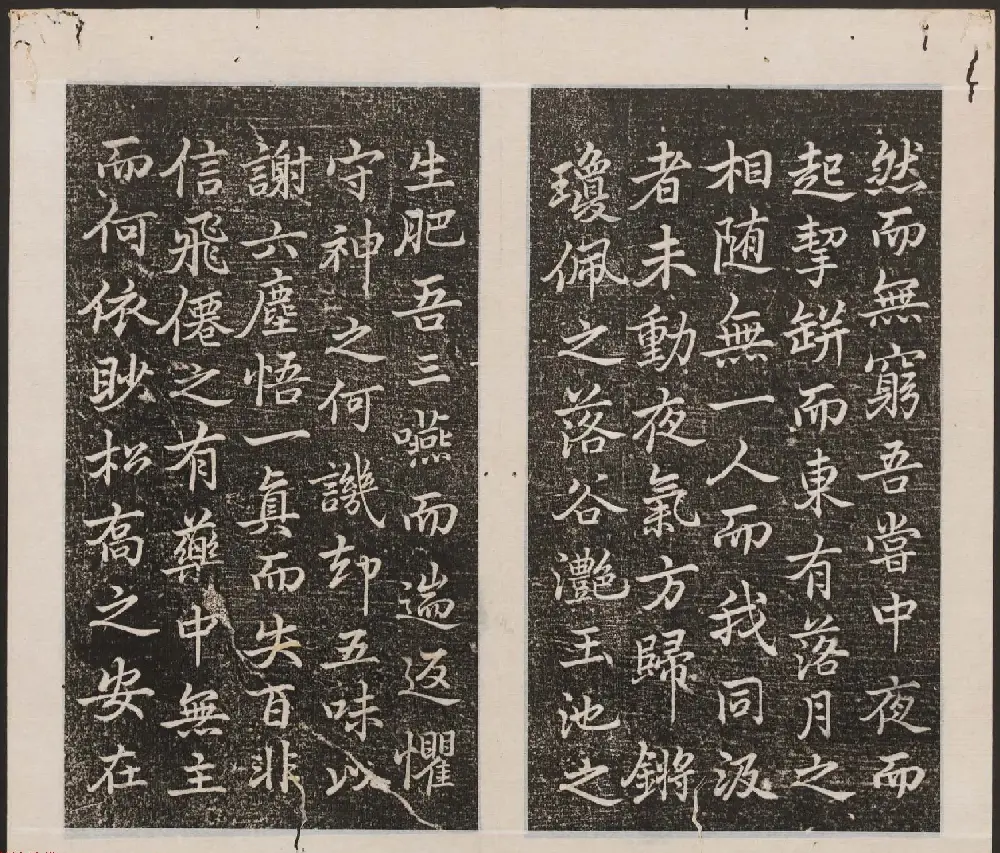 然而無窮吾嘗中夜而
起挈缾而東有落月之
相随無一人而我同汲
者未動夜氣方歸鏘
瓊佩之落谷灔玉池之
生肥吾三嚥而遄返懼
守神之何譏却五味以
謝六塵悟一真而失百非
信飛僊之有藥中無主
而何依眇松喬之安在